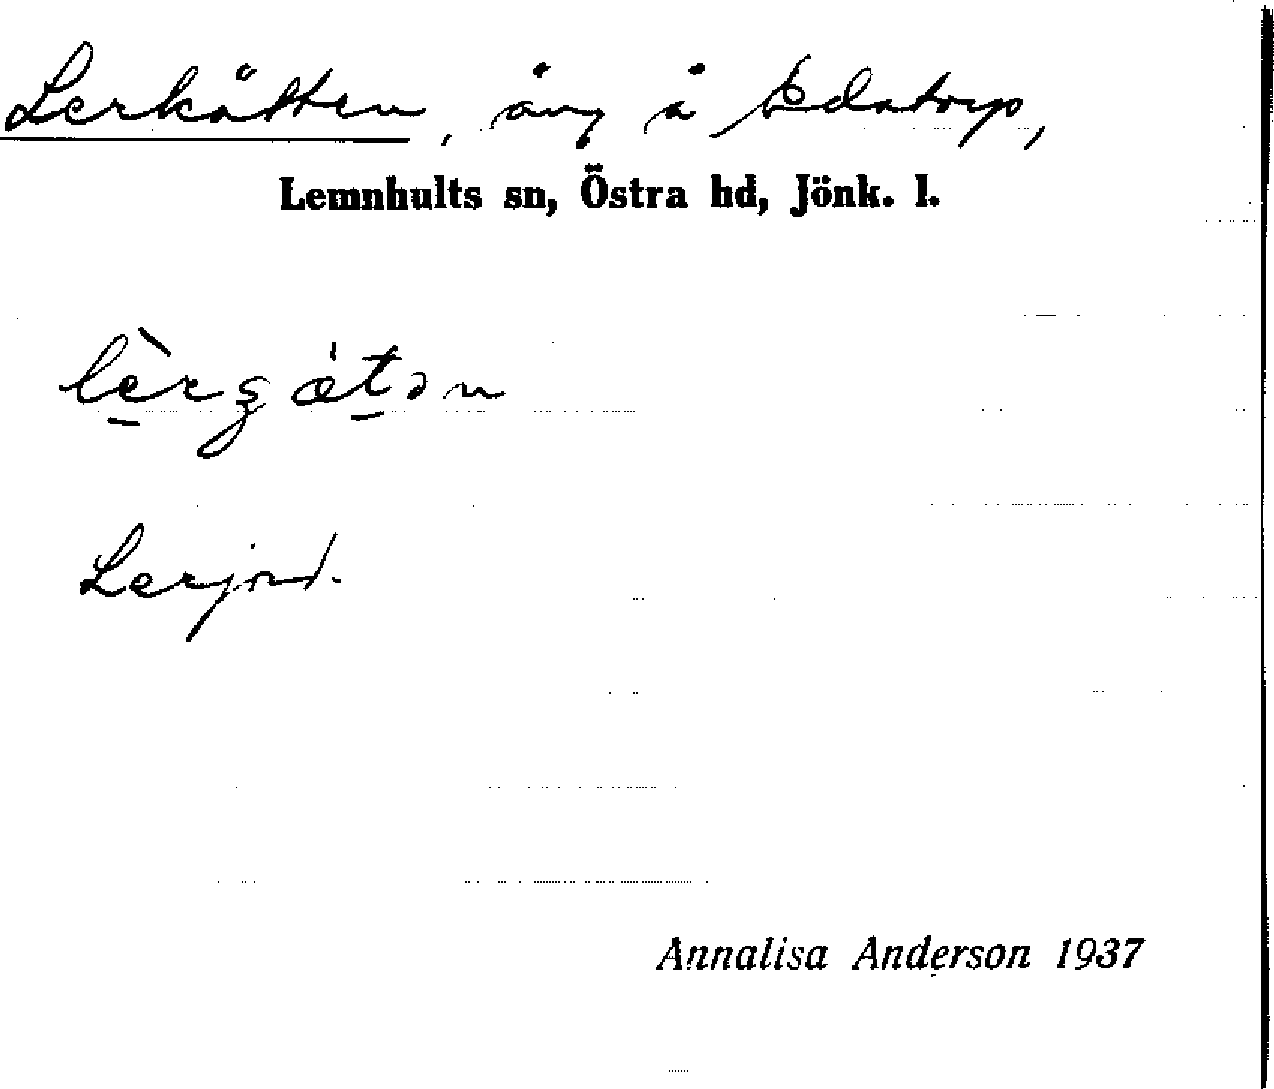 Lerkätten, äng å
Lemnhults sn, Östra hd, Jönk. l.
Lerjord.
Annalisa Anderson 1937